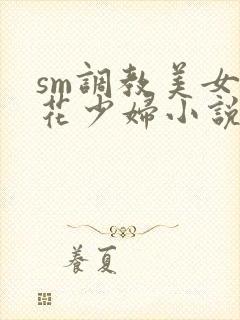 sm調教美女
花少婦小説
養夏